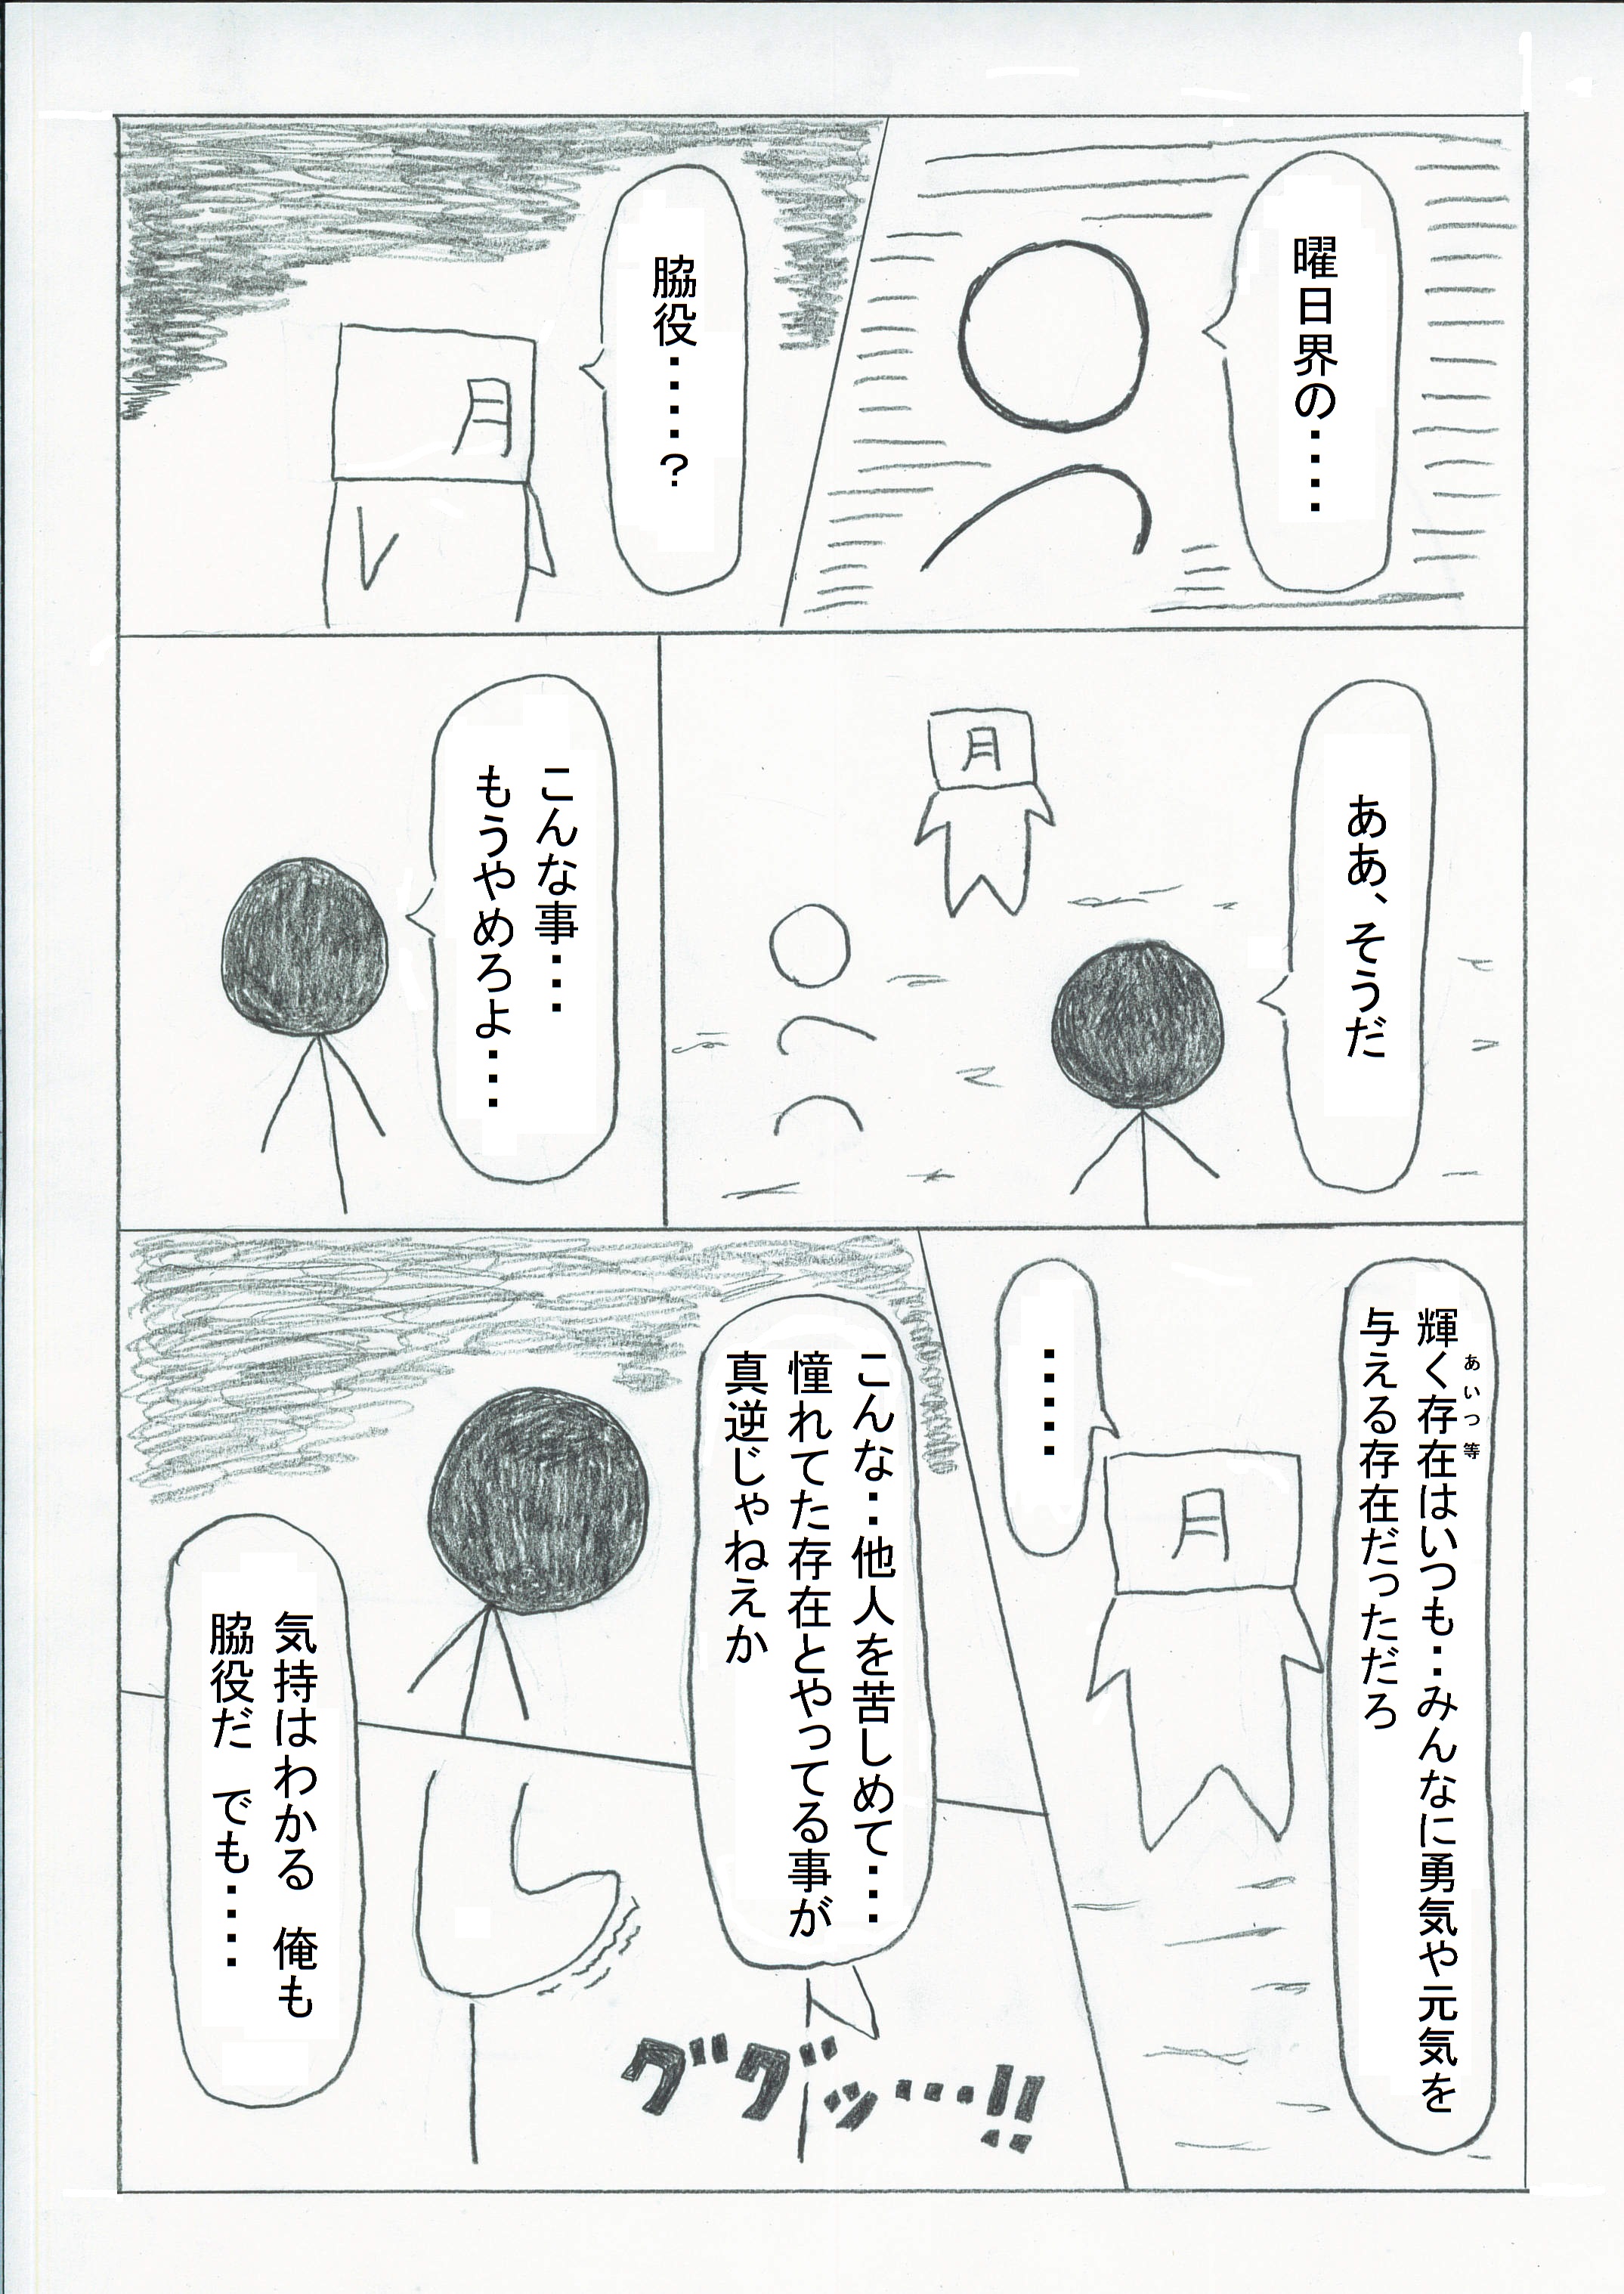 曜日界の・・・・
脇役・・・・・?
月
ああ、そうだ
月
こんな事・・・
もうやめろよ・・・・
輝く存在はいつも・・みんなに勇気や元気を
あいつ等
与える存在だっただろ
・・・・・
月
こんな・・他人を苦しめて・・・
憧れてた存在とやってる事が
真逆じゃねえか
気持はわかる 俺も
脇役だ でも・・・・
グググッ・・・!!